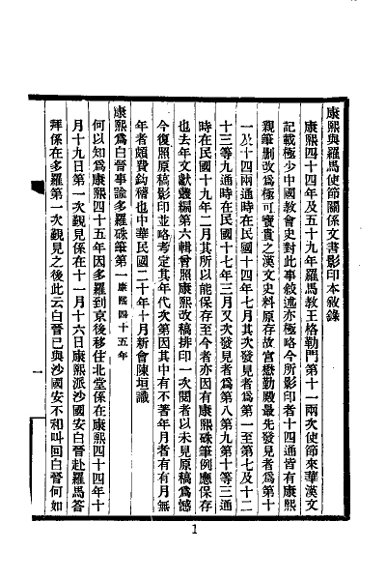 康熙與羅馬使節關係文書影印本敘錄
康熙四十四年及五十九年羅馬教王格勒門第十一兩次使節來華漢文
記載極少中國教會史對此事敍述亦極略今所影印者十四通皆有康熙
親筆刪改爲極可寶貴之漢文史料原存故宮懋勤殿最先發見者爲第十
一及十四兩通時在民國十四年七月其次發見者爲第一至第七及十二
十三等九通時在民國十七年三月又次發見者爲第八第九第十等三通
時在民國十九年二月其所以能保存至今者亦因有康熙硃筆例應保存
也去年文獻叢編第六輯曾照康熙改稿排印一次閱者以未見原稿爲憾
今復照原稿影印並略考定其年代次第因其中有不著年月者有有月無
年者頗費鈎稽也中華民國二十年十月新會陳垣識
康熙爲白晉事諭多羅硃筆第一 康熙四十五年
何以知爲康熙四十五年因多羅到京後移住北堂係在康熙四十四年十
月十九日第一次覲見係在十一月十六日康熙派沙國安白晉赴羅馬答
拜係在多羅第一次覲見之後此云白晉已與沙國安不和叫回白晉何如
一
1